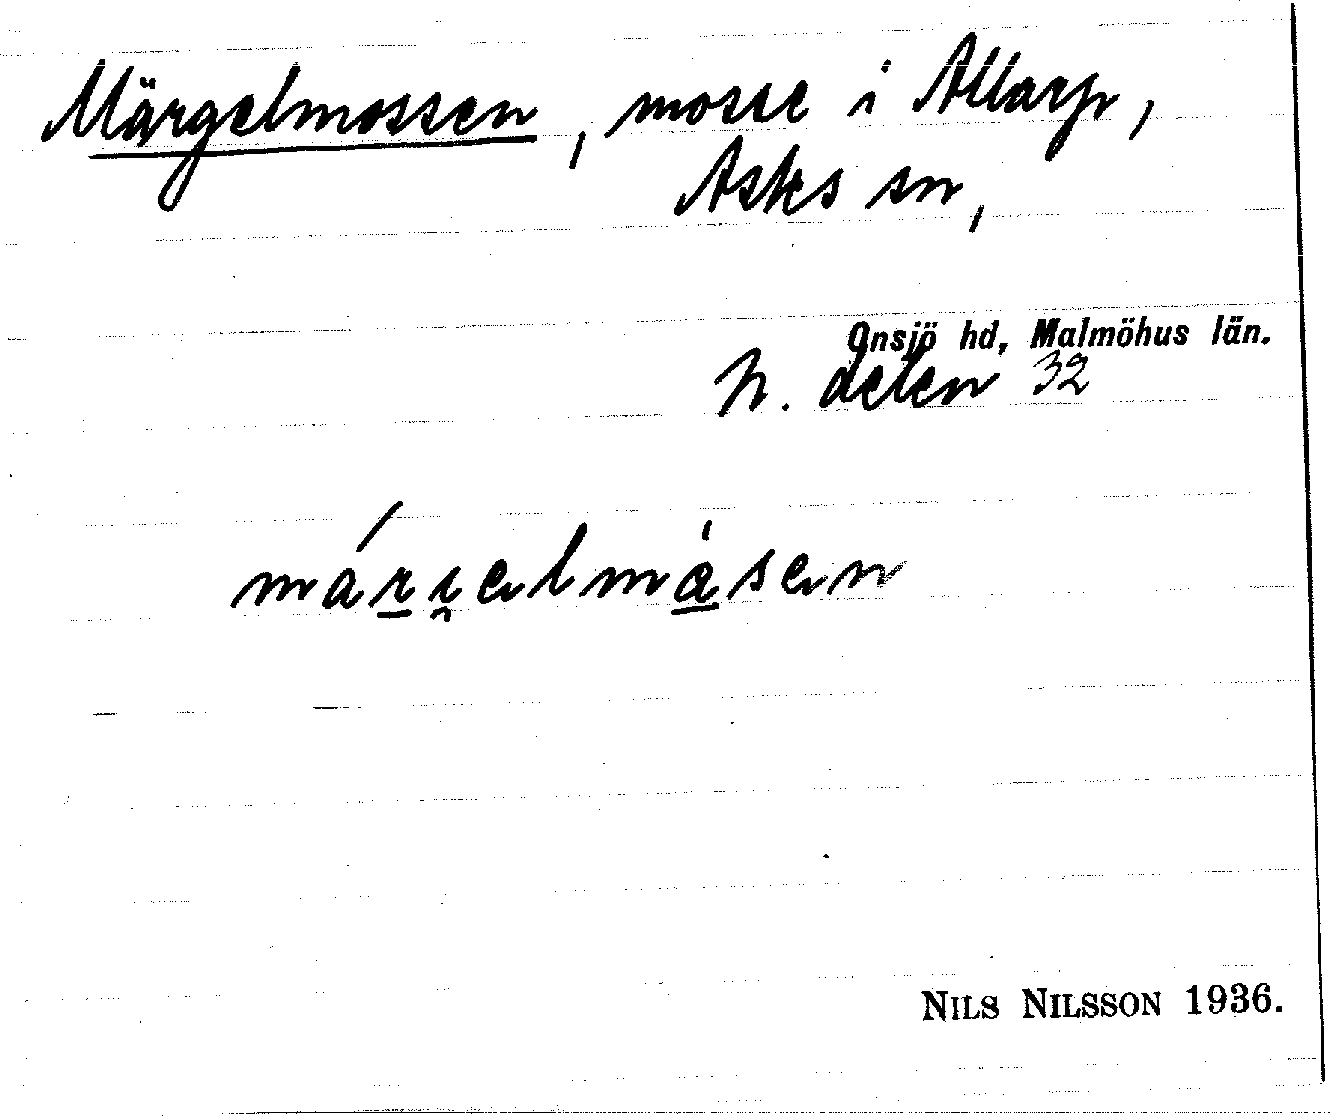 Märgelmossen, mosse i Allarp,
Asks sn,
Onsjö hd, Malmöhus län.
N. delen 32
Nils Nilsson 1936.